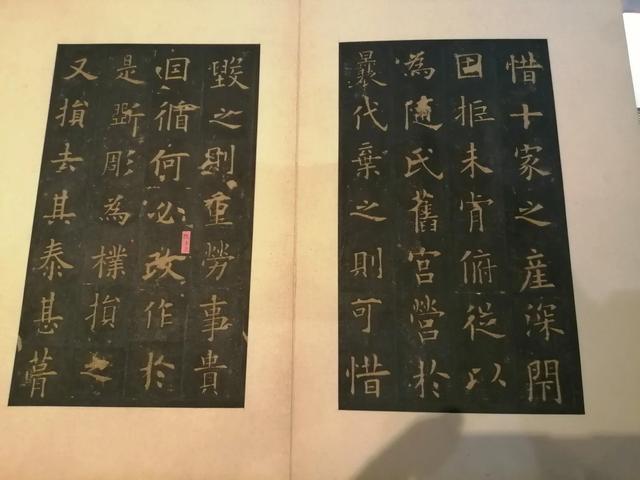 惜十家之產深閇
固拒未肯俯從以
為隨氏舊宮營於
曩代棄之則可惜
毀之則重勞事貴
因循何必改作於
是斵彫為樸損之
又損去其泰甚葺